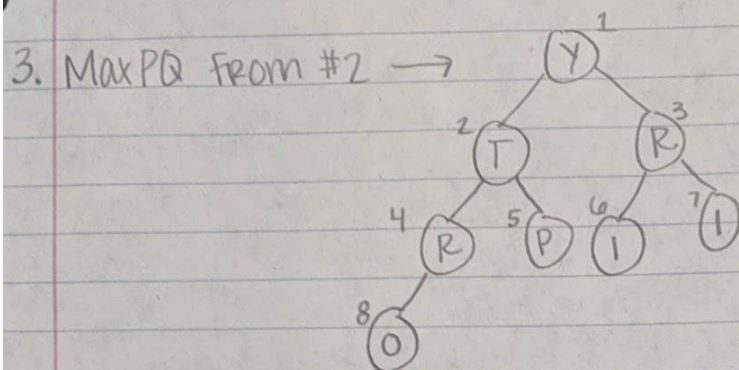 3. MaxPQ FROM #2 →
1
Y
2
T
3
R
4
R
5
P
6
I
7
I
8
O